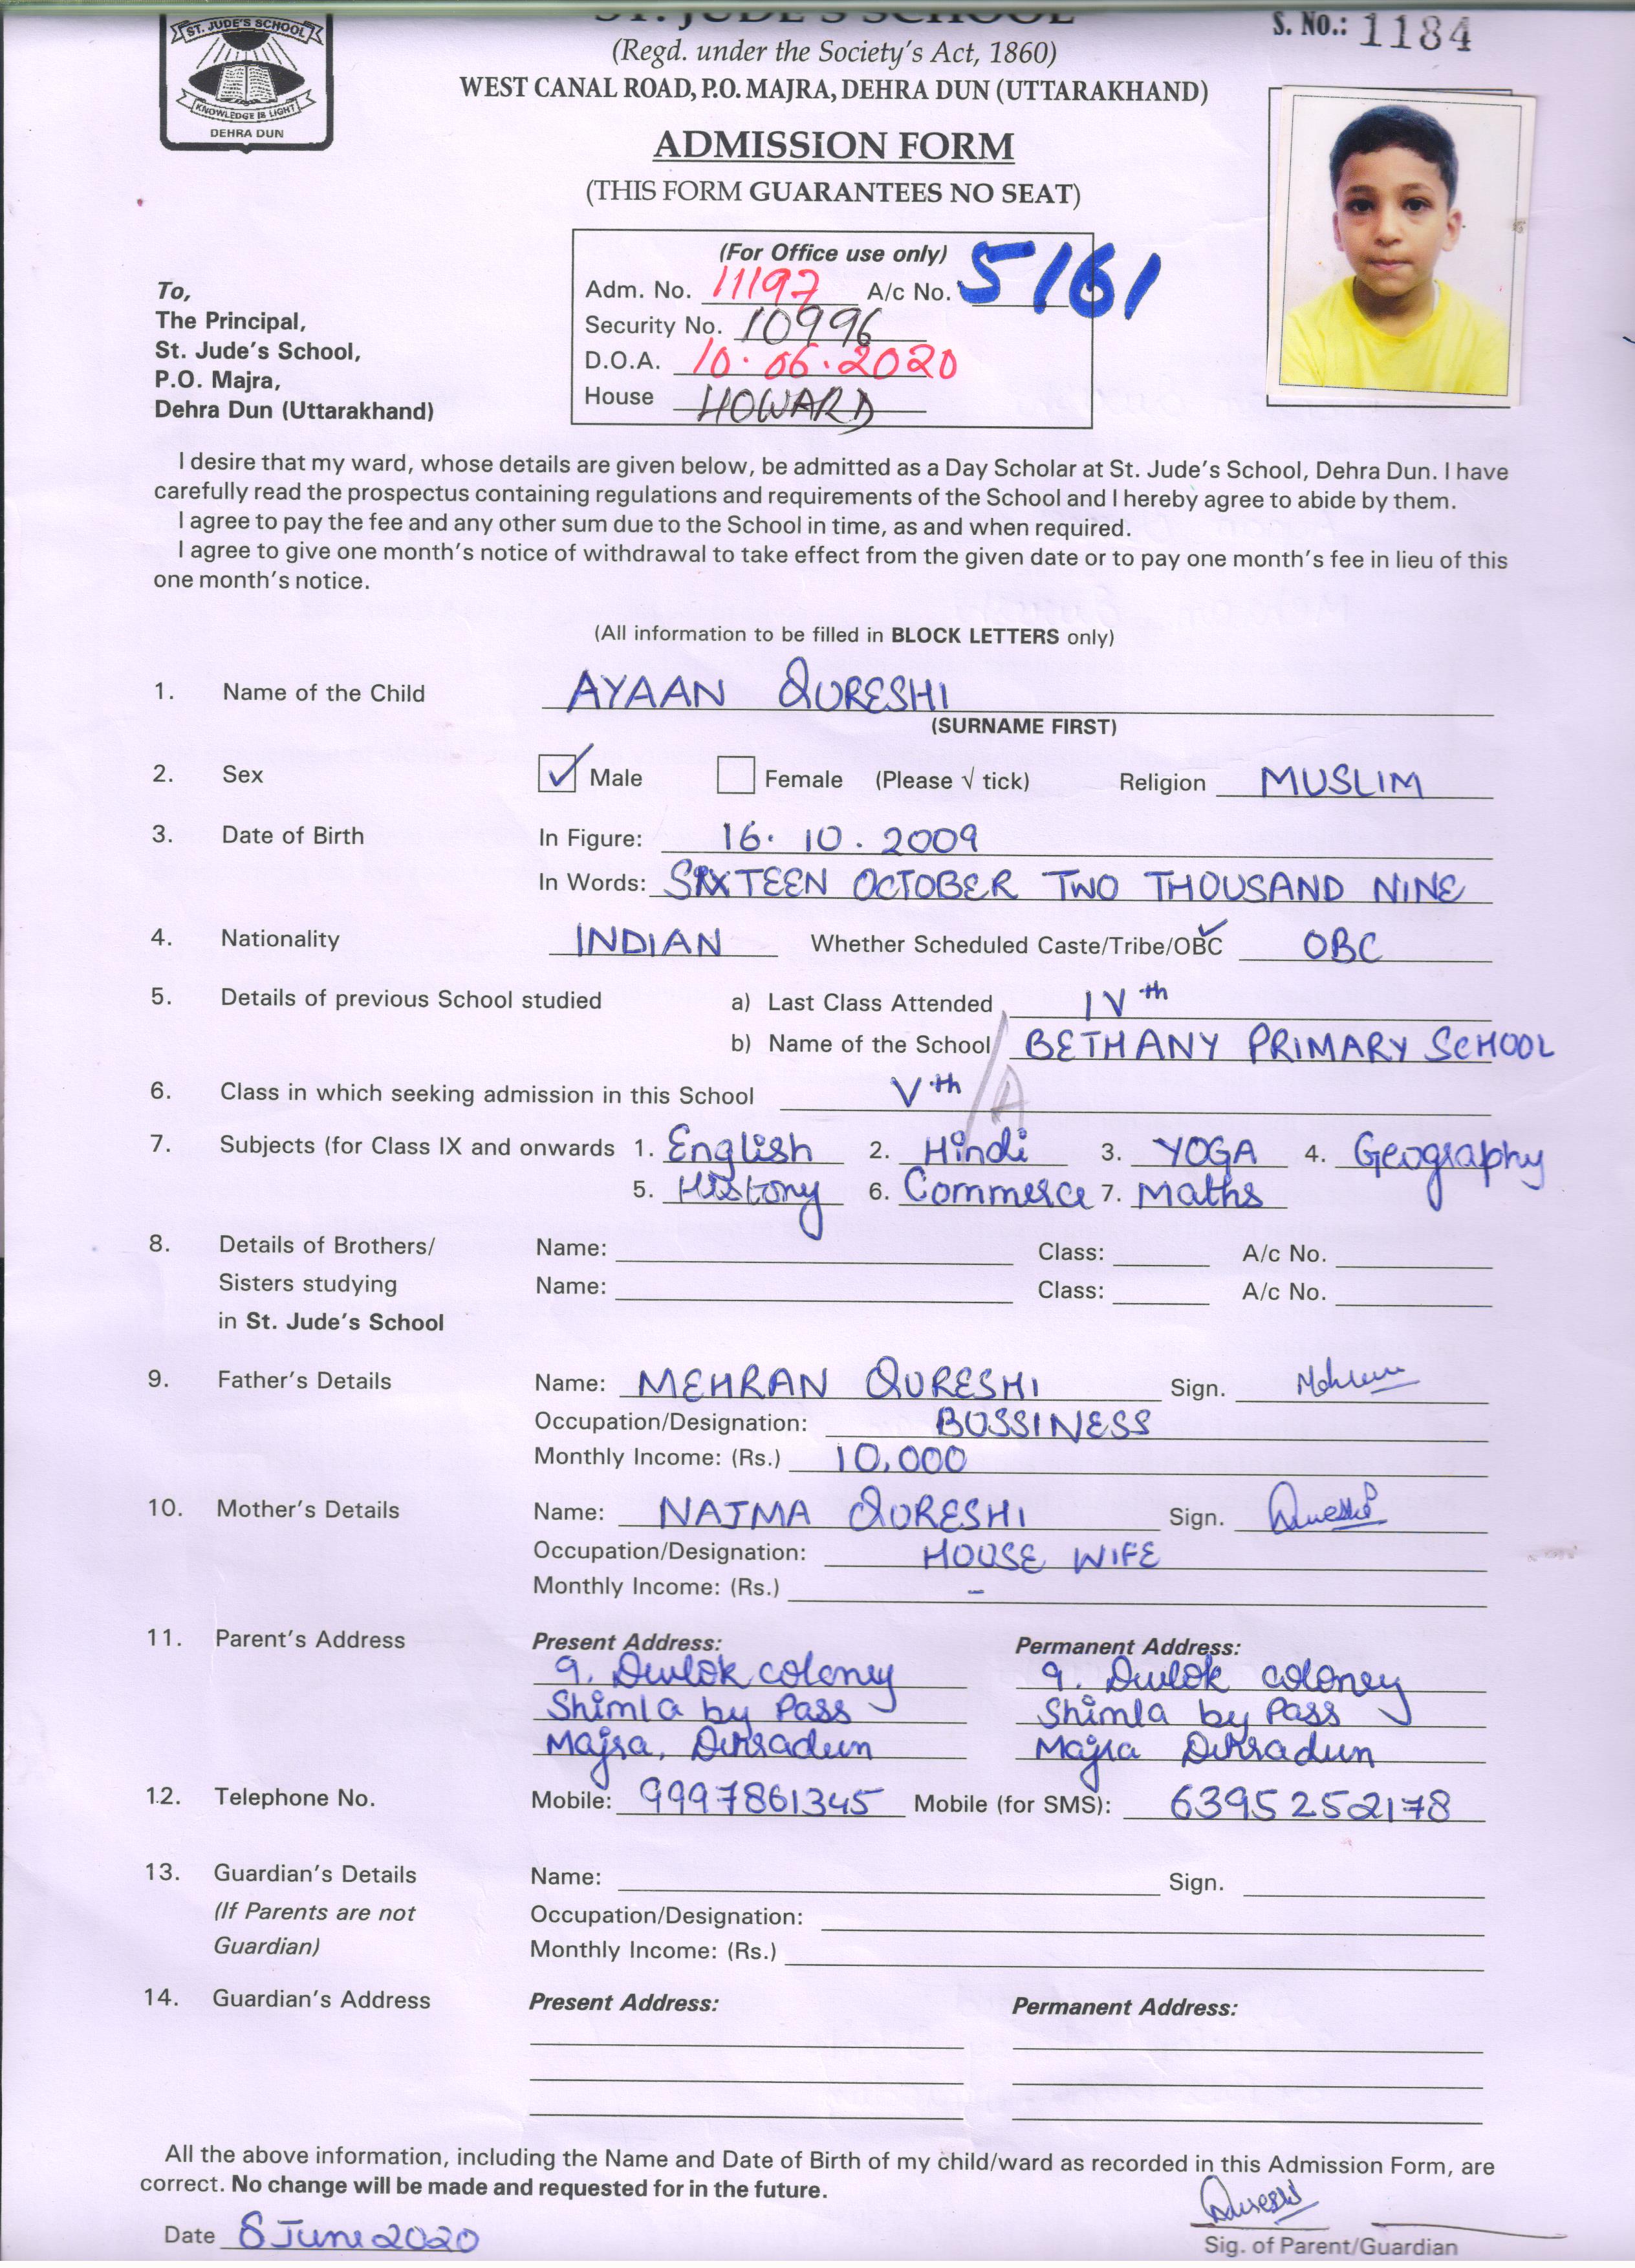 ST. JUDE'S SCHOOL
KNOWLEDGE IS LIGHT
DEHRA DUN
ST. JUDE'S SCHOOL
S. No.: 1184
(Regd. under the Society's Act, 1860)
WEST CANAL ROAD, P.O. MAJRA, DEHRA DUN (UTTARAKHAND)
ADMISSION FORM
(THIS FORM GUARANTEES NO SEAT)
(For Office use only)
Adm. No. 11197 A/c No. 5161
Security No. 10996
D.O.A. 10.06.2020
House HOWARD
To,
The Principal,
St. Jude's School,
P.O. Majra,
Dehra Dun (Uttarakhand)
I desire that my ward, whose details are given below, be admitted as a Day Scholar at St. Jude's School, Dehra Dun. I have
carefully read the prospectus containing regulations and requirements of the School and I hereby agree to abide by them.
I agree to pay the fee and any other sum due to the School in time, as and when required.
I agree to give one month's notice of withdrawal to take effect from the given date or to pay one month's fee in lieu of this
one month's notice.
(All information to be filled in BLOCK LETTERS only)
1. Name of the Child AYAAN QURESHI
(SURNAME FIRST)
2. Sex ✓ Male Female (Please √ tick) Religion MUSLIM
3. Date of Birth In Figure: 16. 10. 2009
In Words: SIXTEEN OCTOBER TWO THOUSAND NINE
4. Nationality INDIAN Whether Scheduled Caste/Tribe/OBC OBC
5. Details of previous School studied a) Last Class Attended IVth
b) Name of the School BETHANY PRIMARY SCHOOL
6. Class in which seeking admission in this School Vth /A
7. Subjects (for Class IX and onwards 1. English 2. Hindi 3. YOGA 4. Geography
5. History 6. Commerce 7. Maths
8. Details of Brothers/ Name: Class: A/c No.
Sisters studying Name: Class: A/c No.
in St. Jude's School
9. Father's Details Name: MEHRAN QURESHI Sign. Mehran
Occupation/Designation: BUSSINESS
Monthly Income: (Rs.) 10,000
10. Mother's Details Name: NAJMA QURESHI Sign. Qureshi
Occupation/Designation: HOUSE WIFE
Monthly Income: (Rs.) -
11. Parent's Address Present Address: Permanent Address:
9. Devlok coloney 9. Devlok coloney
Shimla by Pass Shimla by Pass
Majra, Dehradun Majra Dehradun
12. Telephone No. Mobile: 9997861345 Mobile (for SMS): 6395252178
13. Guardian's Details Name: Sign.
(If Parents are not Occupation/Designation:
Guardian) Monthly Income: (Rs.)
14. Guardian's Address Present Address: Permanent Address:
All the above information, including the Name and Date of Birth of my child/ward as recorded in this Admission Form, are
correct. No change will be made and requested for in the future.
Qureshi
Date 8 June 2020
Sig. of Parent/Guardian